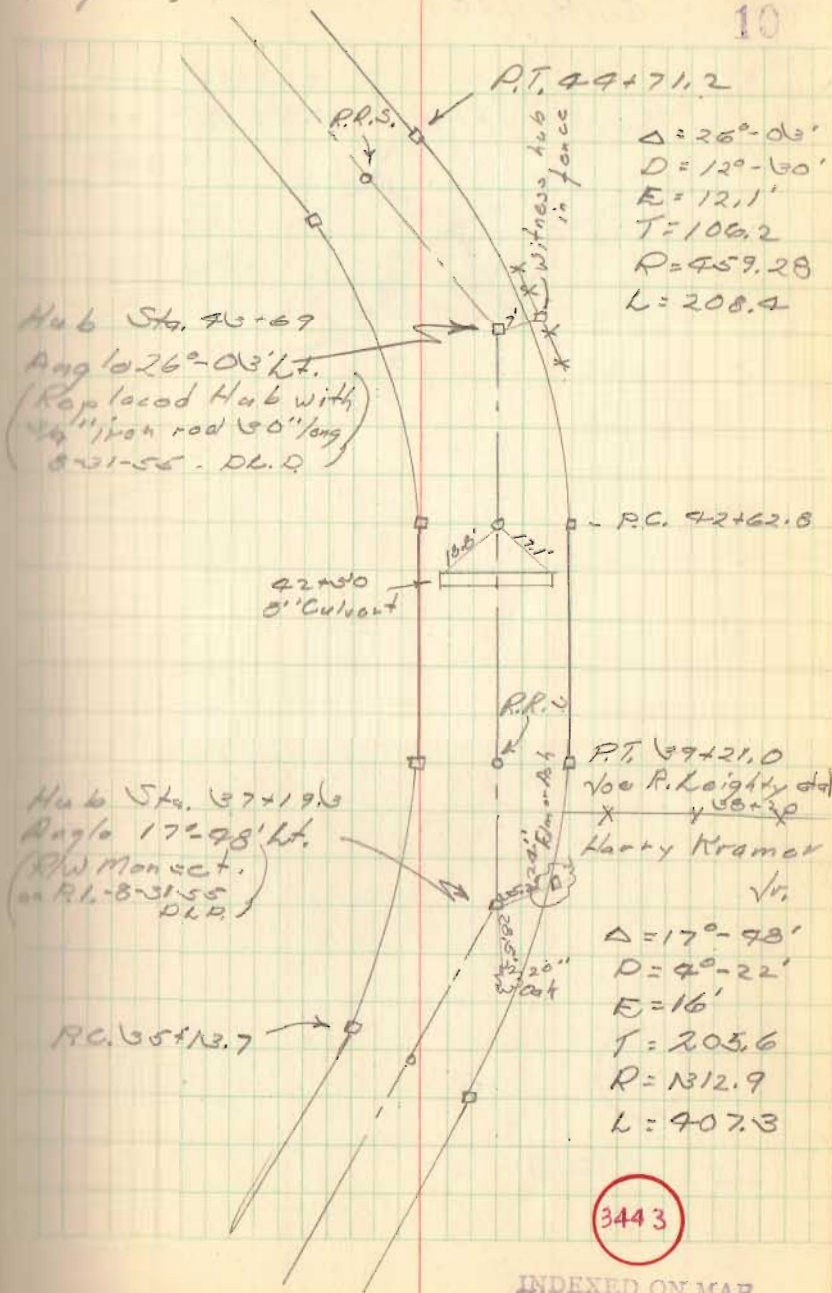 10
P.T. 44+71.2
R.R.S.
Witness hub
in fence
Δ = 26°-03'
D = 12°-30'
E = 12.1'
T = 106.2
R = 459.28
L = 208.4
Hub Sta. 43+69
Angle 26°-03' Lt.
(Replaced Hub with
3/4" iron rod 30" long
8-31-55 - D.L.D.)
7'
P.C. 42+62.8
17.1'
42+50
8" Culvert
R.R.S.
P.T. 39+21.0
Joe R. Leighty
X
Harry Kramer
Jr.
Hub Sta. 37+19.3
Angle 17°-48' Lt.
(R/W Mon set.
on P.I. - 8-31-55
D.L.D.)
24"
20"
Oak
Δ = 17°-48'
D = 4°-22'
E = 16'
T = 205.6
R = 1312.9
L = 407.3
P.C. 35+13.7
3443
INDEXED ON MAP